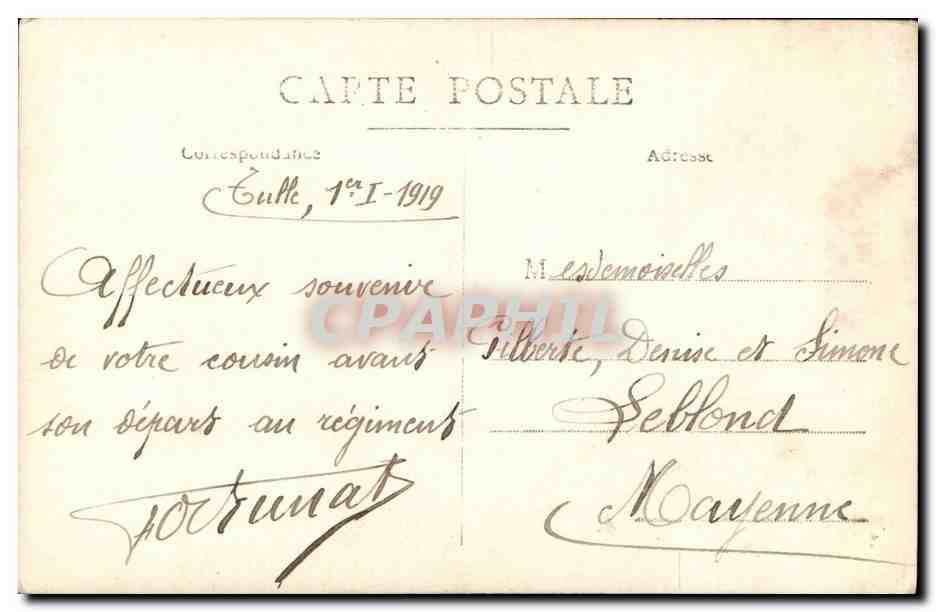 CARTE POSTALE
Correspondance
Adresse
Tulle, 1er I-1919
Affectueux souvenir
de votre cousin avant
son départ au régiment
Fortunat
Mesdemoiselles
Gilberte, Denise et Simone
Leblond
Mayenne
CPAPHIL